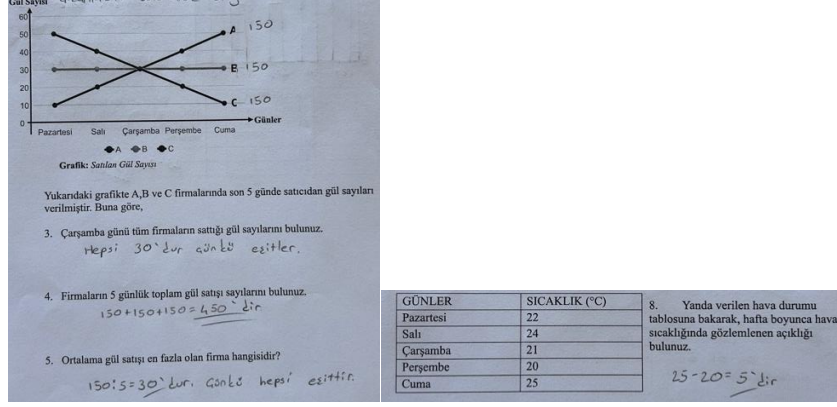 Gül Sayısı
60
50
40
30
20
10
0
A 150
B 150
C 150
Günler
Pazartesi Salı Çarşamba Perşembe Cuma
A B C
Grafik: Satılan Gül Sayısı
Yukarıdaki grafikte A,B ve C firmalarında son 5 günde satıcıdan gül sayıları
verilmiştir. Buna göre,
3. Çarşamba günü tüm firmaların sattığı gül sayılarını bulunuz.
Hepsi 30'dur çünkü eşitler.
4. Firmaların 5 günlük toplam gül satışı sayılarını bulunuz.
150+150+150=450'dir
5. Ortalama gül satışı en fazla olan firma hangisidir?
150:5=30'dur. Çünkü hepsi eşittir.
GÜNLER SICAKLIK (°C)
Pazartesi 22
Salı 24
Çarşamba 21
Perşembe 20
Cuma 25
8. Yanda verilen hava durumu
tablosuna bakarak, hafta boyunca hava
sıcaklığında gözlemlenen açıklığı
bulunuz.
25-20=5'dir